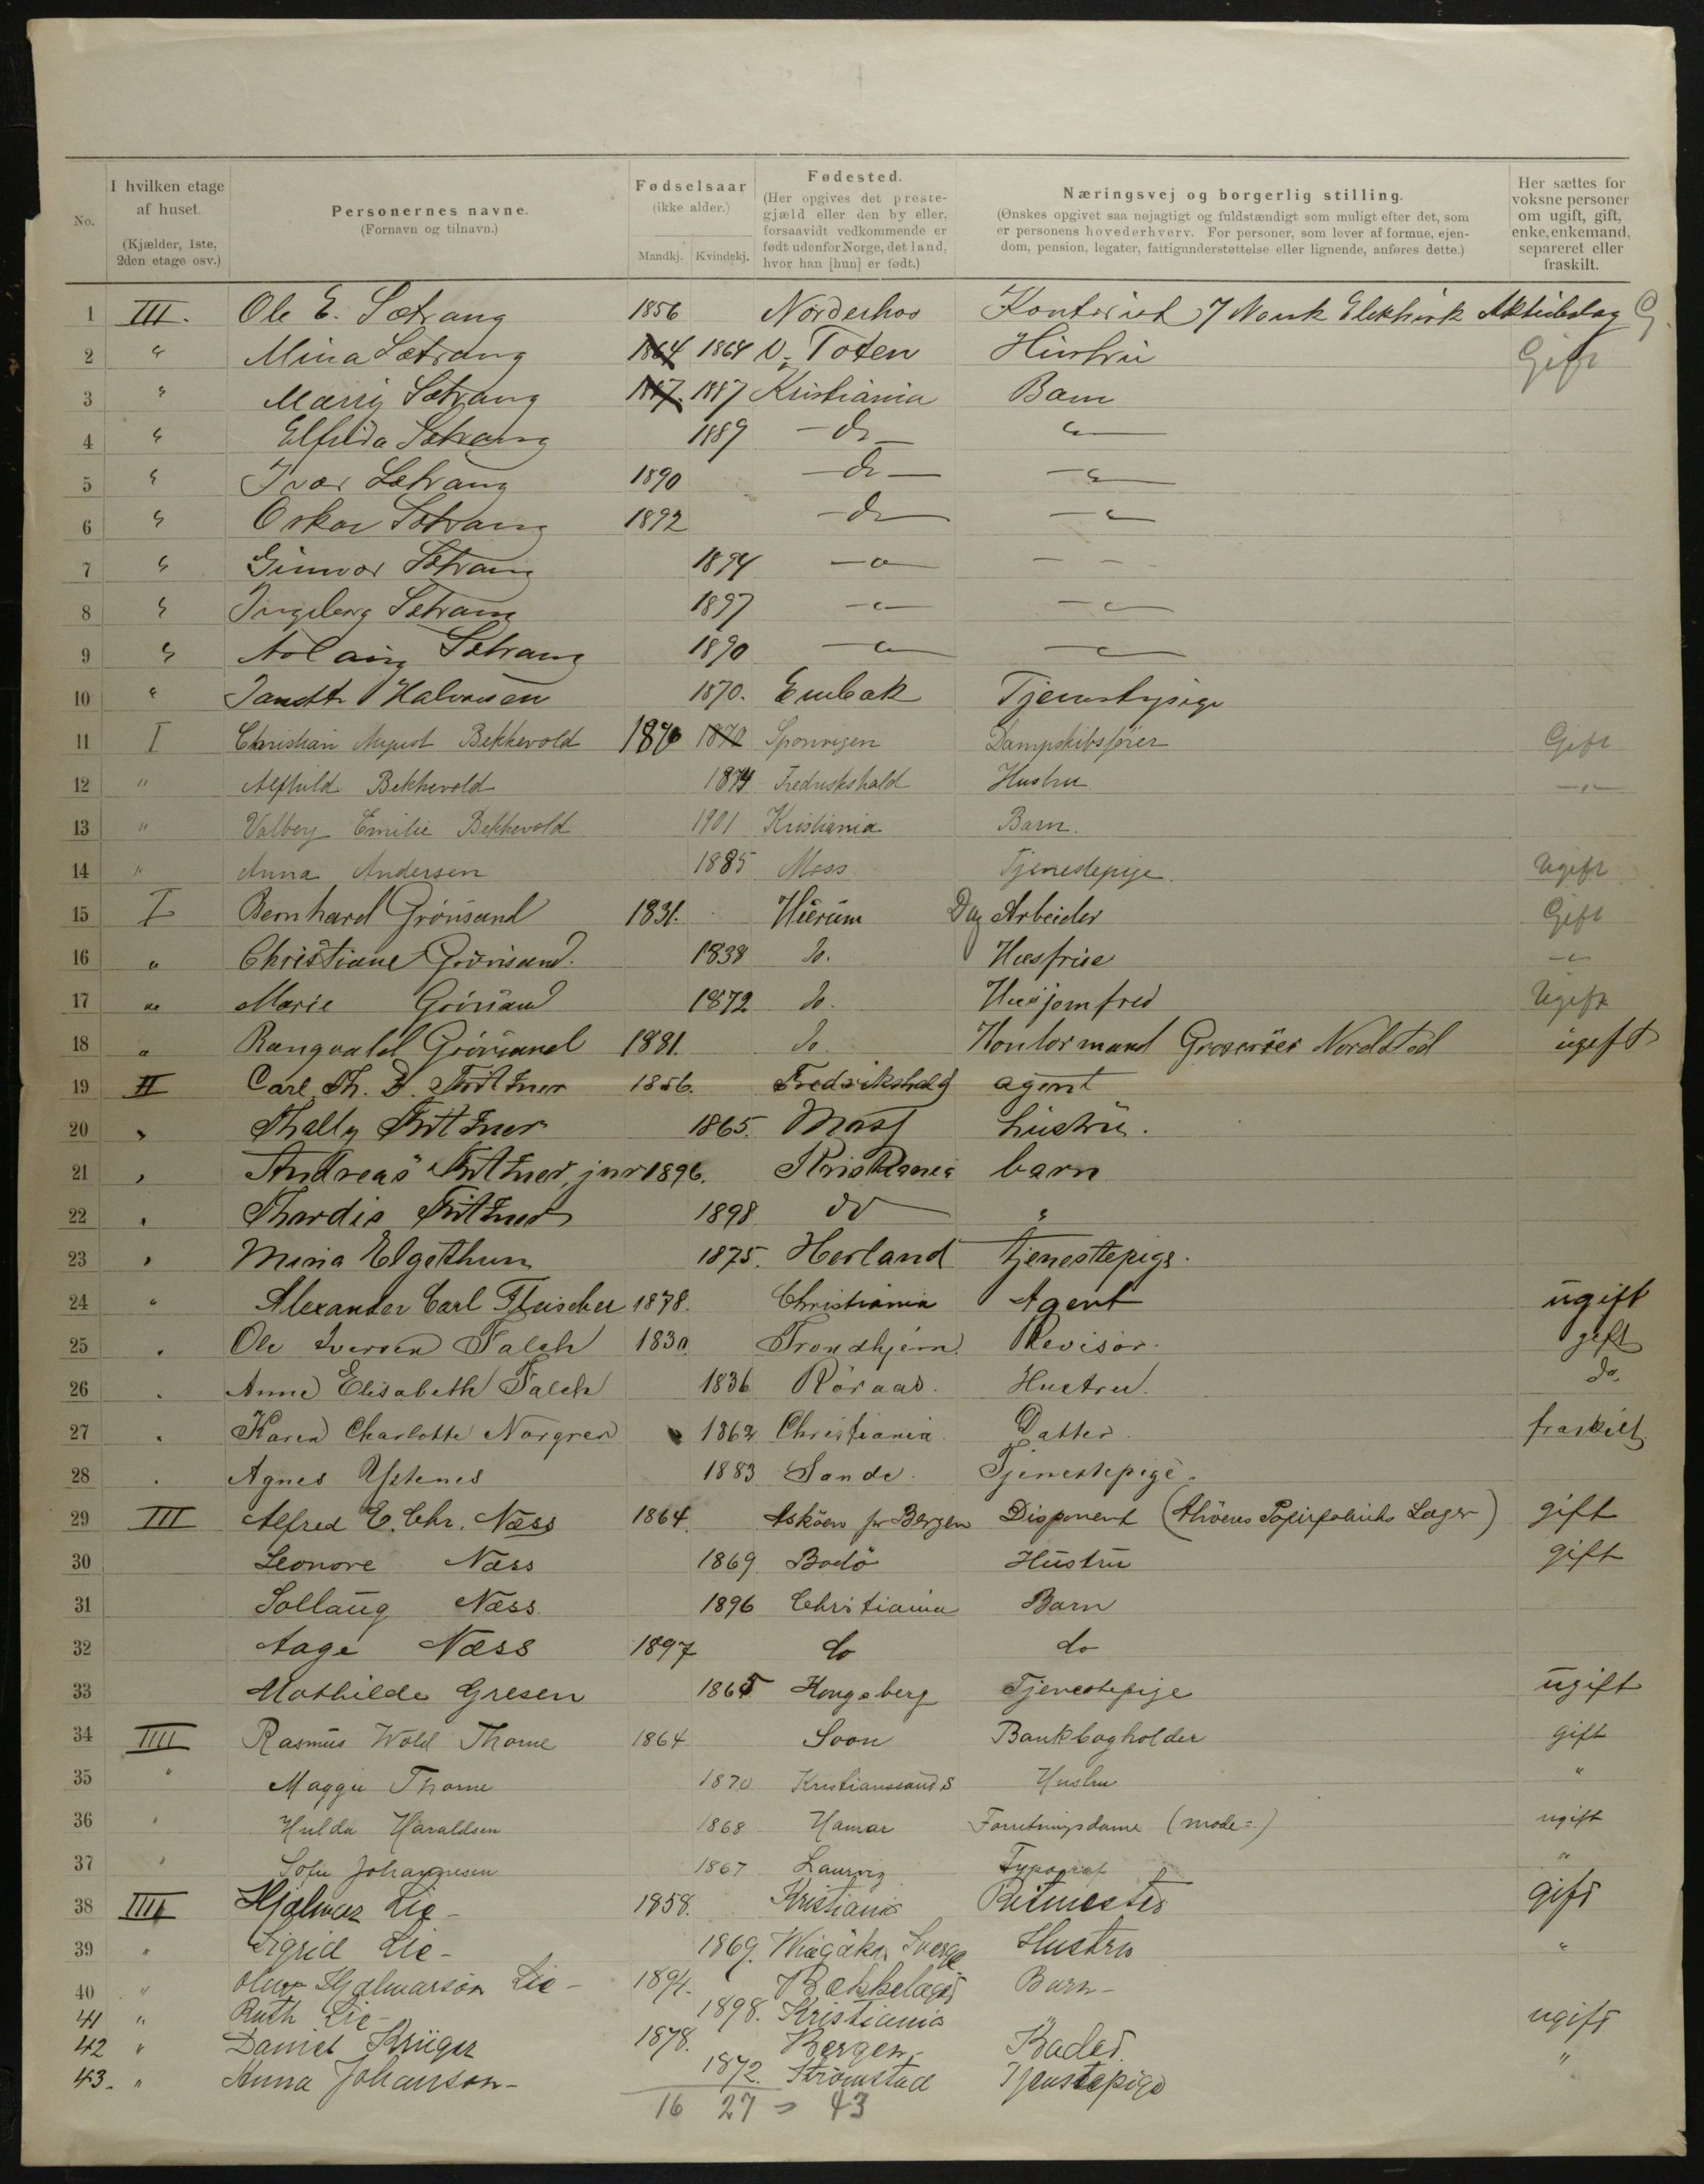 No.
I hvilken etage af huset.
(Kjælder, 1ste, 2den etage osv.)
Personernes navne.
(Fornavn og tilnavn.)
Fødselsaar
(ikke alder.)
Mandkj. Kvindekj.
Fødested.
(Her opgives det prestegjæld eller den by eller, forsaavidt vedkommende er født udenfor Norge, det land, hvor han [hun] er født.)
Næringsvej og borgerlig stilling.
(Ønskes opgivet saa nøjagtigt og fuldstændigt som muligt efter det, som er personens hovederhverv. For personer, som lever af formue, ejendom, pension, legater, fattigunderstøttelse eller lignende, anføres dette.)
Her sættes for voksne personer om ugift, gift, enke, enkemand, separeret eller fraskilt.
1 III. Ole E. Sætrang 1856 Norderhov Kontorist Norsk Elektrisk Aktieselag G.
2 " Mina Sætrang 1864 1864 V. Toten Hustru Gift
3 " Marry Sætrang 1887 1887 Kristiania Barn
4 " Elfrida Sætrang 1889 - do - "
5 " Ivar Sætrang 1890 - do - "
6 " Oskar Sætrang 1892 - do - "
7 " Gunvor Sætrang 1894 - " - - -
8 " Ingeborg Sætrang 1897 - " - - " -
9 " Aslaug Sætrang 1890 - " - - " -
10 " Halvorsen 1870. Enebak Tjenestepige
11 I Christian August Bekkevold 1870 1870 Dampskibsfører Gift
12 " Alfhild Bekkevold 1874 Fredrikshald Hustru - " -
13 " Valborg Emilie Bekkevold 1901 Kristiania Barn.
14 " Anna Andersen 1885 Moss Tjenestepige. Ugift
15 I Bernhard Grönsand 1831. Hurum Dag Arbeider Gift
16 " Christiane Grönsand. 1838 do. Husfrue - " -
17 " Marie Grönsand 1872 do. Husjomfru Ugift
18 " Rangvald Grönsand 1881. do. Kontormand Grosserer Nordstad ugift
19 II Carl Th. D. Fritzner 1856. Fredrikshald agent
20 " Thally Fritzner 1865. Moss hustru.
21 " Andreas Fritzner, jnr 1896. Kristiania barn
22 " Thordis Fritzner 1898 do "
23 " Mina Elgethun 1875. Herland tjenestepige.
24 " Alexander Carl Fleischer 1878. Christiania Agent ugift
25 " Ole Iversen Falch 1830 Trondhjem. Revisor. gift
26 " Anne Elisabeth Falch 1836 Röraas. Hustru. do.
27 " Karen Charlotte Norgren 1862 Christiania. Datter. fraskilt
28 " Agnes Ystenes 1883 Sande. Tjenestepige.
29 III Alfred E. Chr. Næss 1864. Asköen pr Bergen Disponent (Alvöens Papirfabriks Lager) gift
30 Leonore Næss 1869 Bodö Hustru gift
31 Sollaug Næss. 1896 Christiania Barn
32 Aage Næss 1897 do do
33 Mathilde Gresen 1865 Kongsberg Tjenestepige ugift
34 IIII Rasmus Wold Thorne 1864 Soon Bankbogholder gift
35 " Maggie Thorne 1870 Kristianssand S Hustru "
36 " Hulda Haraldsen 1868 Hamar Forretningsdame (mode=) ugift
37 " Sofie Johannesen 1867 Laurvig Typograf "
38 IIII Hjalmar Lie - 1858. Kristiania Ritmester gift
39 " Sigrid Lie - 1869. Sverge Hustru "
40 " Hjalmarson Lie - 1894. Bækkelaget Barn -
41 " Ruth Lie - 1898. Kristiania
42 " Daniel Krüger 1878. Bergen - Bader. ugift
43. " Anna Johanson - 1872. Strömstad Tjenstepige "
16 27 = 43